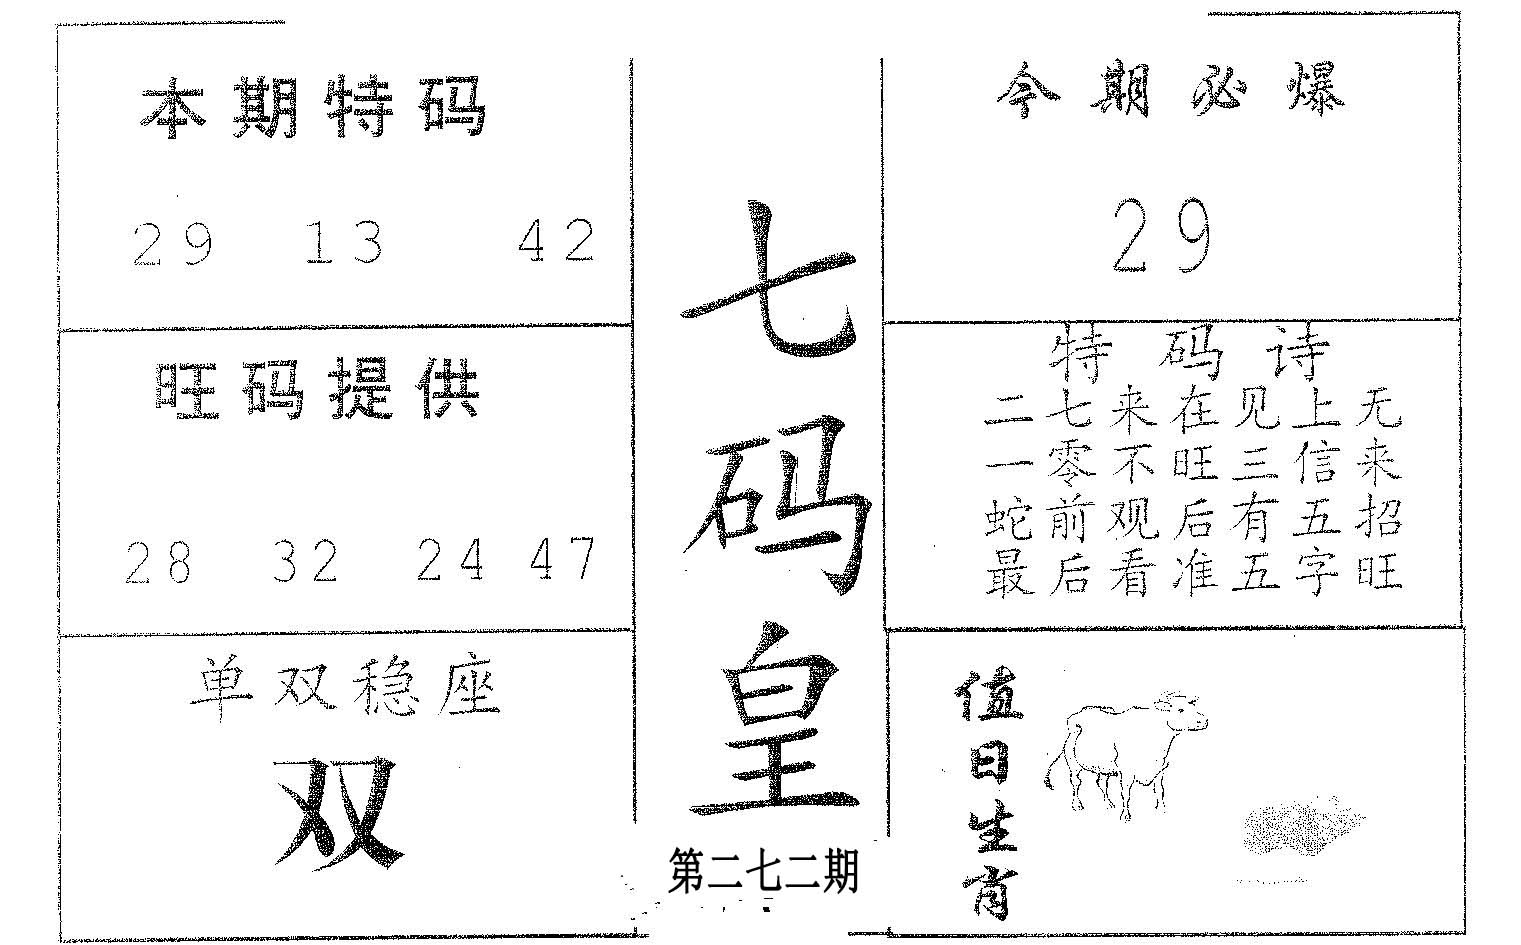 本期特码
29 13 42
旺码提供
28 32 24 47
单双稳座
双
七码皇
第二七二期
今期必爆
29
特码诗
二七来在见上无
一零不旺三信来
蛇前观后有五招
最后看准五字旺
值日生肖